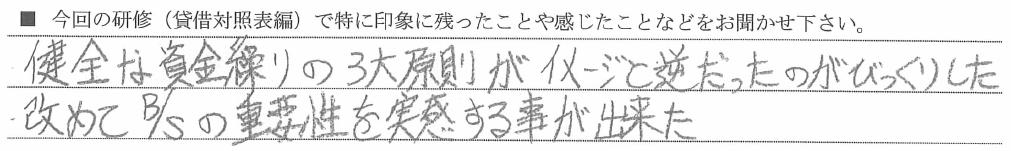 ■ 今回の研修（貸借対照表編）で特に印象に残ったことや感じたことなどをお聞かせ下さい。
・健全な資金繰りの3大原則がイメージと逆だったのがびっくりした
・改めてB/Sの重要性を実感する事が出来た